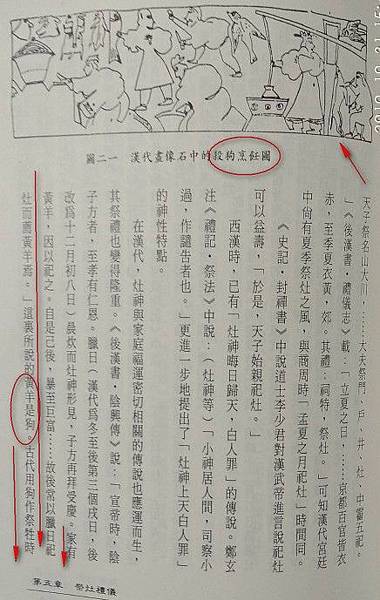 圖二一 漢代畫像石中的殺狗烹飪圖
天子祭名山大川，……大夫祭門、戶、井、灶、中霤五祀。
」《後漢書·禮儀志》載：「立夏之日，……京都百官皆衣
赤，至季夏衣黃，郊。其禮：祠特，祭灶。」可知漢代宮廷
中尚有夏季祭灶之風，與商周時「孟夏之月祀灶」時間同。
《史記·封禪書》中說道士李少君對漢武帝進言說祀灶
可以益壽，「於是，天子始親祀灶。」
西漢時，已有「灶神晦日歸天，白人罪」的傳說。鄭玄
注《禮記·祭法》中說：（灶神等）「小神居人間，司察小
過，作譴告者也。」更進一步地提出了「灶神上天白人罪」
的神性特點。
在漢代，灶神與家庭福運密切相關的傳說也應運而生，
其祭禮也變得隆重。《後漢書·陰興傳》說：「宣帝時，陰
子方者，至孝有仁恩。臘日（漢代為冬至後第三個戌日，後
改為十二月初八日）晨炊而灶神形見，子方再拜受慶。家有
黃羊，因以祀之。自是已後，暴至巨富……故後常以臘日祀
灶而薦黃羊焉。」這裏所說的黃羊是狗。古代用狗作祭牲時，
第五章 祭灶禮儀